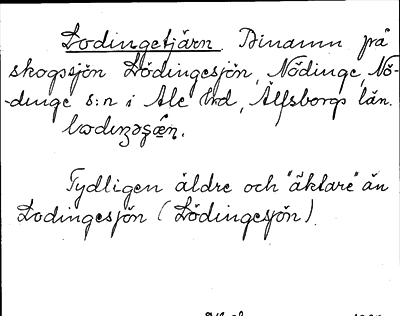 Lodingetjärn. Binamn på
skogssjön Lödingesjön, Nödinge, Nö-
-dinge s:n i Ale hd, Älfsborgs län.
Tydligen äldre och "äktare" än
Lodingesjön (Lödingesjön).